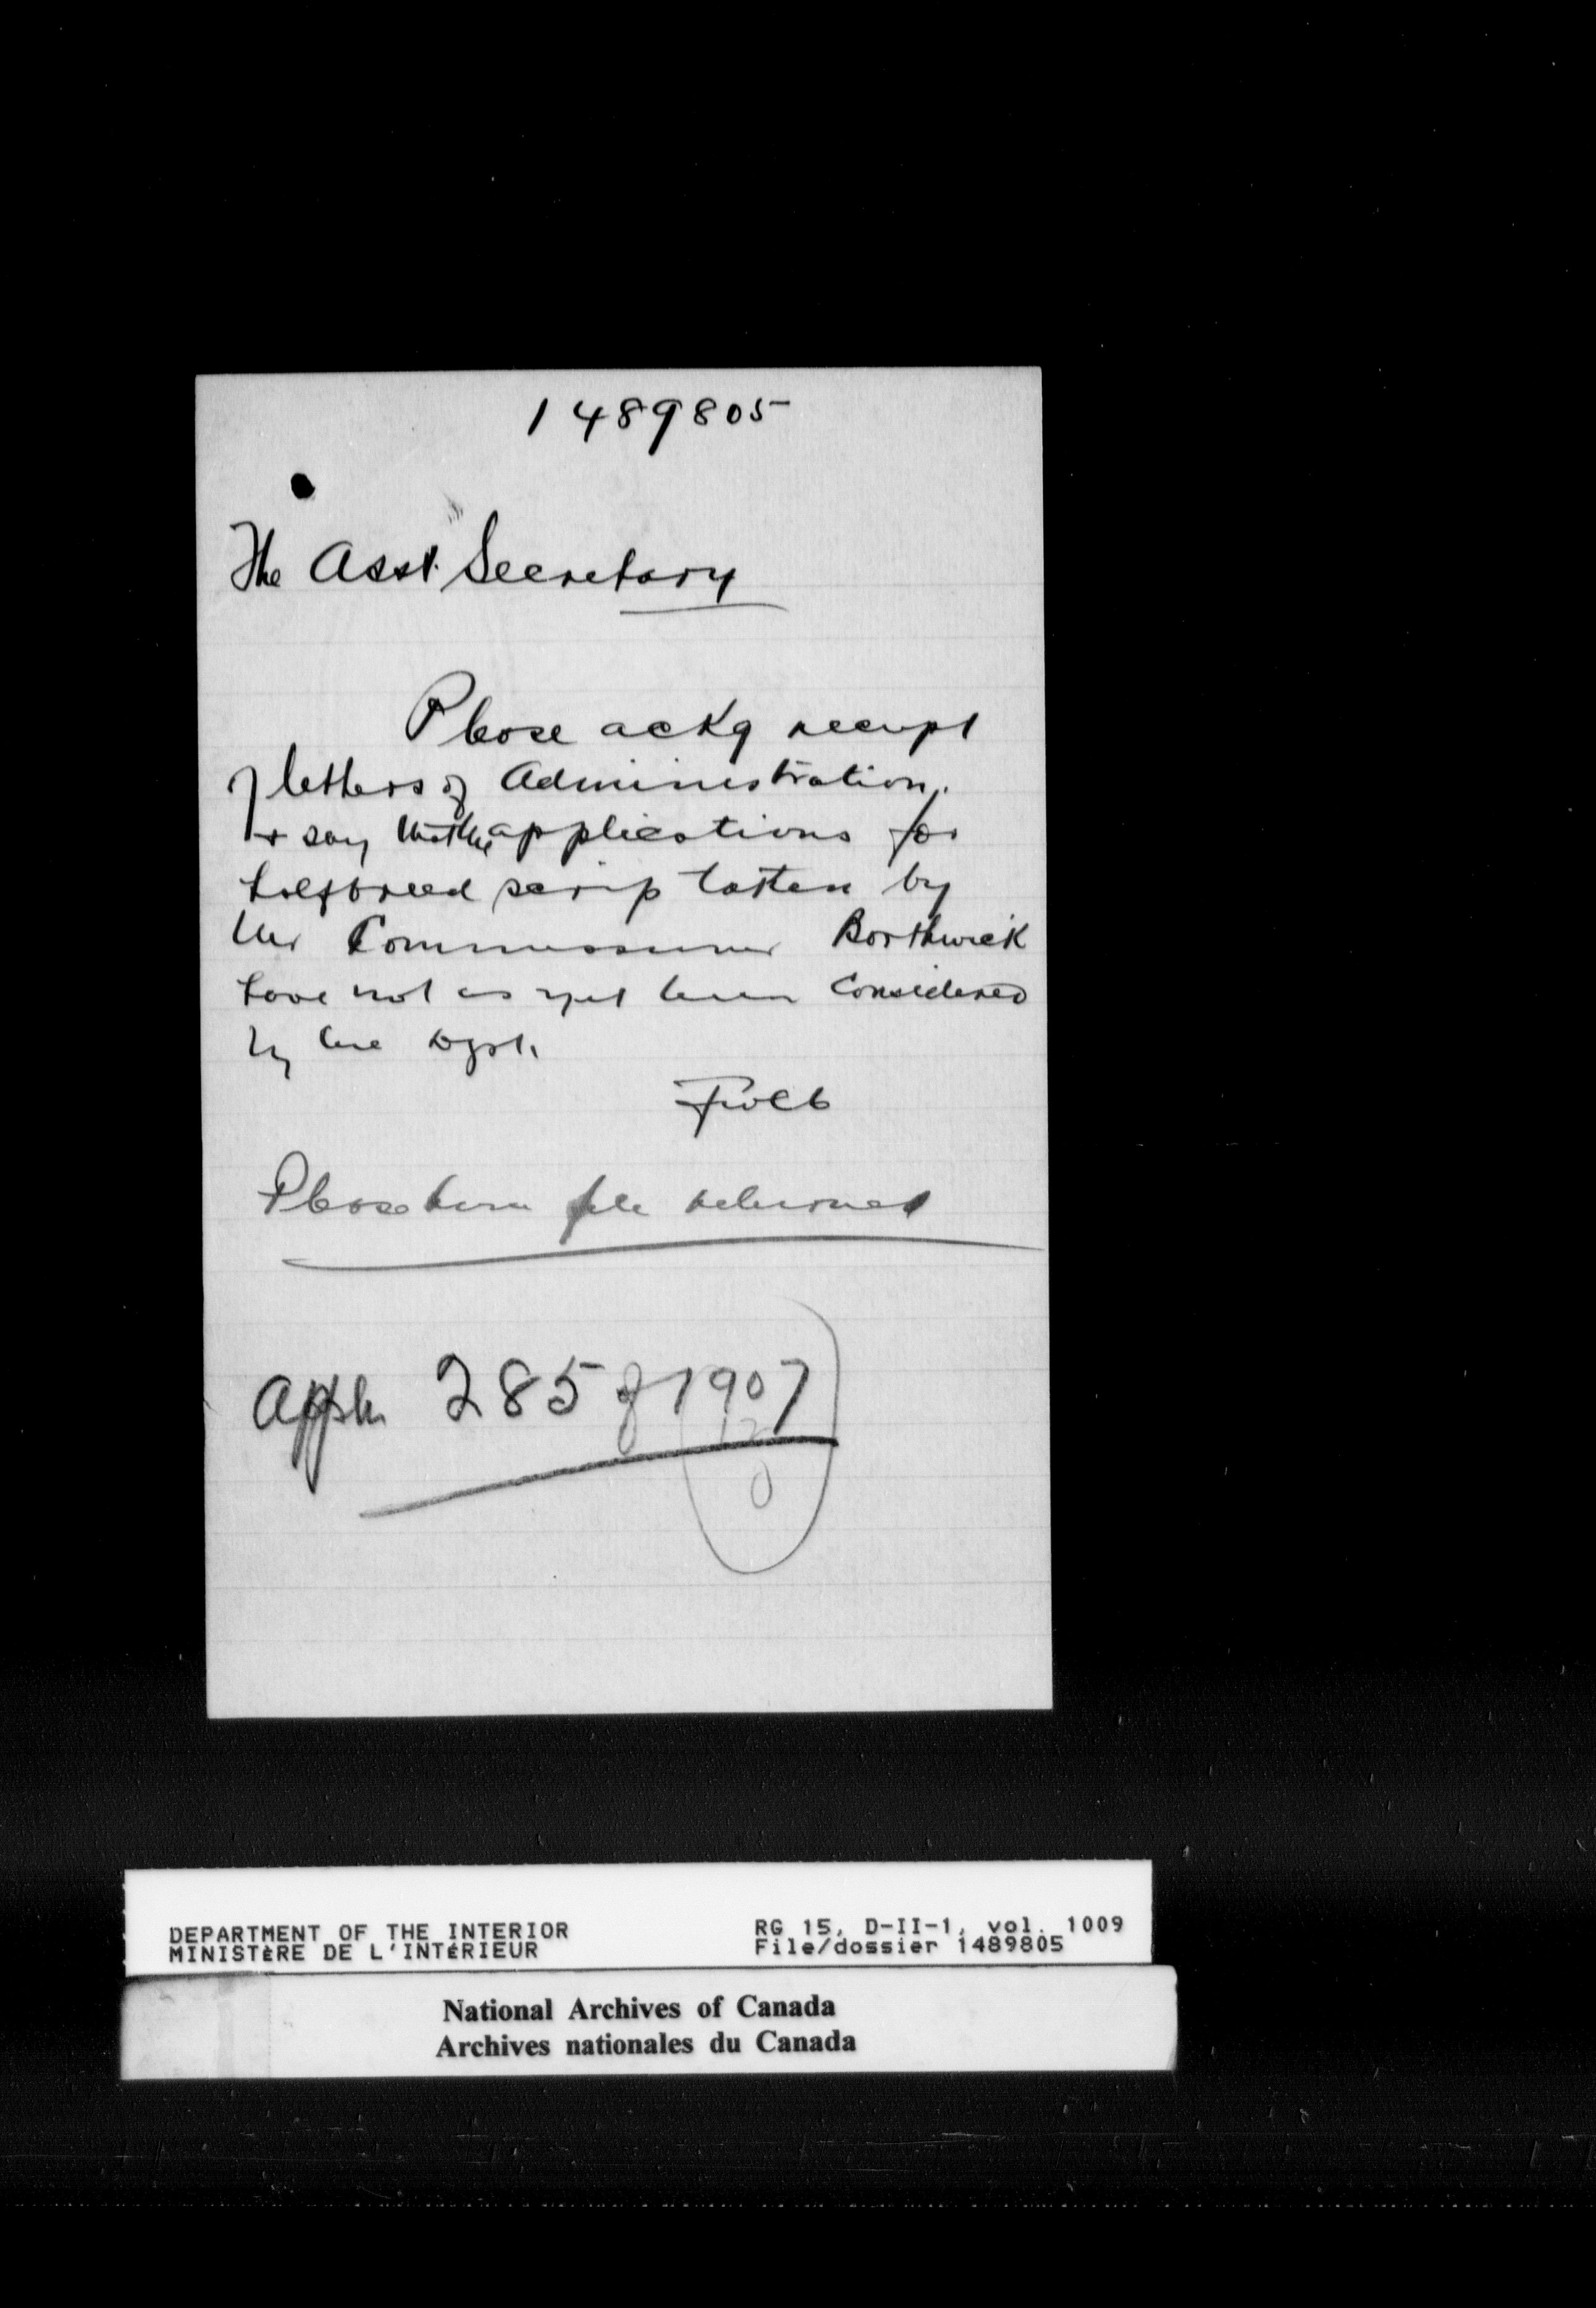 1489805
The Asst. Secretary
Please ackg receipt
of letters of Administration,
+ say that the applications for
halfbreed scrip taken by
the Commissioner Borthwick
have not as yet been considered
by the Dept.
Please have file returned
Appln 285 of 1907
DEPARTMENT OF THE INTERIOR
MINISTÈRE DE L'INTÉRIEUR
RG 15, D-II-1, vol. 1009
File/dossier 1489805
National Archives of Canada
Archives nationales du Canada